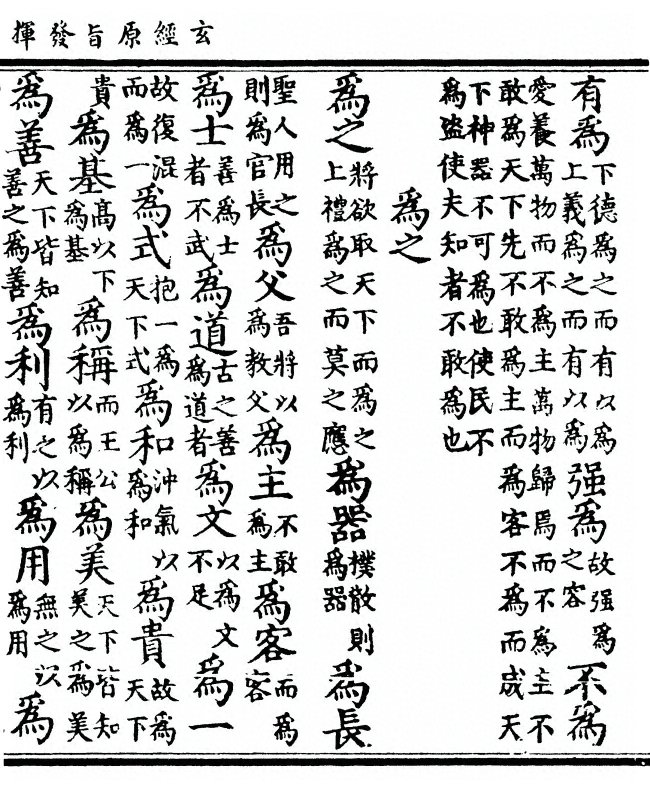 玄經原旨發揮
有爲下德爲之而有以爲上義爲之而有以爲强爲故强爲之容不爲
愛養萬物而不爲主萬物歸焉而不爲主不
敢爲天下先不敢爲主而爲客不爲而成天
下神器不可爲也使民不
爲盗使夫知者不敢爲也
爲之
爲之將欲取天下而爲之上禮爲之而莫之應爲器樸散則爲器爲長
聖人用之則爲官長爲父吾將以爲教父爲主不敢爲主爲客而爲客
爲士善爲士者不武爲道古之善爲道者爲文以爲文不足爲一
故復混而爲一爲式抱一爲天下式爲和沖氣以爲和爲貴故爲天下
貴爲基高以下爲基爲稱而王公以爲稱爲美天下皆知美之爲美
爲善天下皆知善之爲善爲利有之以爲利爲用無之以爲用爲